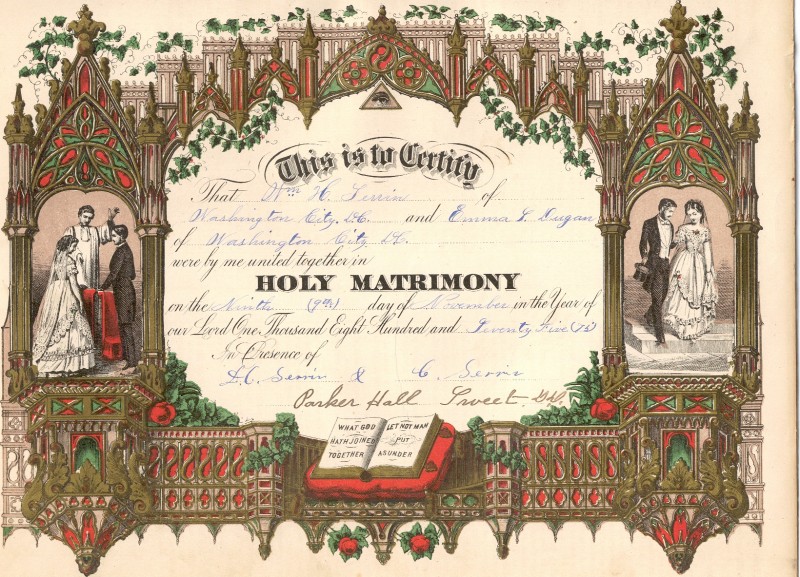 This is to Certify
That Wm H. Serrin of
Washington City D.C. and Emma S. Dugan
of Washington City D.C.
were by me united together in
HOLY MATRIMONY
on the Ninth (9th) day of November in the Year of
our Lord One Thousand Eight Hundred and Seventy Five (75)
In Presence of
D.C. Serrin & C. Serrin
Parker Hall Sweet
WHAT GOD
HATH JOINED
TOGETHER
LET NOT MAN
PUT
ASUNDER